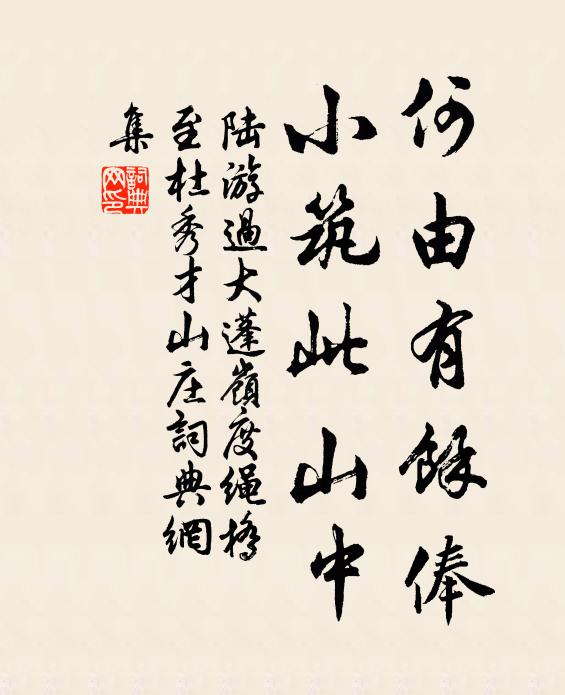 何由有餘俸
小筑此山中
陆游過大蓬嶺度绳橋
至杜秀才山庄詞典網
集
詞典网印